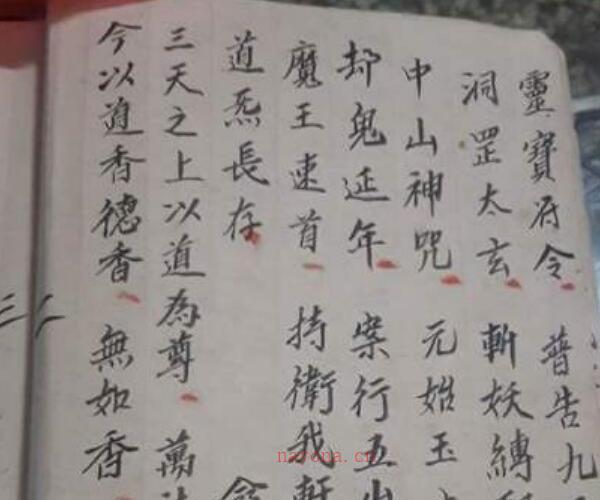 靈寶符令 普告九
洞罡太玄 斬妖縛
中山神咒 元始玉
却鬼延年 案行五
魔王速首 持衛我軒
道炁長存
三天之上以道為尊 萬
今以道香德香 無如香
nayona.cn